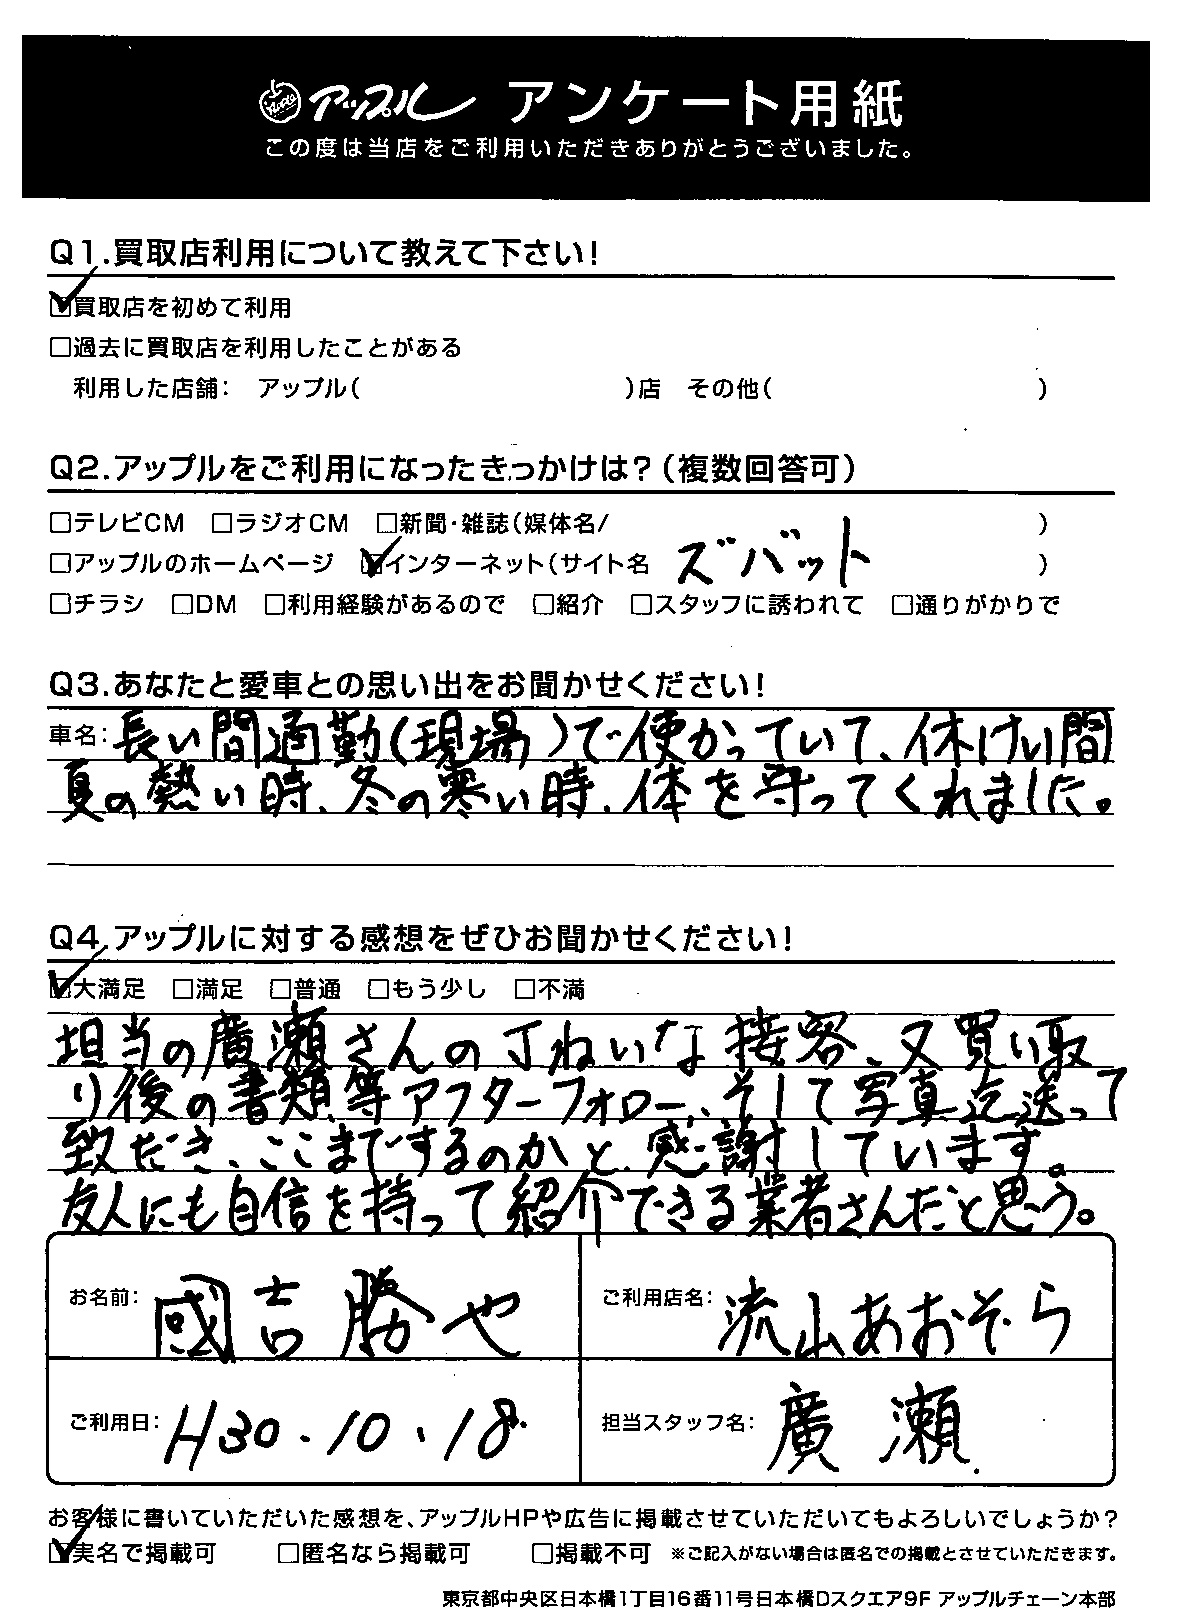 Apple アップル アンケート用紙
この度は当店をご利用いただきありがとうございました。
Q1.買取店利用について教えて下さい!
☑買取店を初めて利用
□過去に買取店を利用したことがある
利用した店舗: アップル( )店 その他( )
Q2.アップルをご利用になったきっかけは?(複数回答可)
□テレビCM □ラジオCM □新聞・雑誌(媒体名/ )
□アップルのホームページ ☑インターネット(サイト名 ズバット )
□チラシ □DM □利用経験があるので □紹介 □スタッフに誘われて □通りがかりで
Q3.あなたと愛車との思い出をお聞かせください!
車名: 長い間通勤(現場)で使かっていて、休けい間
夏の熱い時、冬の寒い時、体を守ってくれました。
Q4.アップルに対する感想をぜひお聞かせください!
☑大満足 □満足 □普通 □もう少し □不満
担当の廣瀬さんの丁ねいな接客、又買い取
り後の書類等アフターフォロー、そして写真迄送って
致だき、ここまでするのかと感謝しています。
友人にも自信を持って紹介できる業者さんだと思う。
お名前: 國吉勝也 ご利用店名: 流山あおぞら
ご利用日: H30.10.18 担当スタッフ名: 廣瀬
お客様に書いていただいた感想を、アップルHPや広告に掲載させていただいてもよろしいでしょうか?
☑実名で掲載可 □匿名なら掲載可 □掲載不可 ※ご記入がない場合は匿名での掲載とさせていただきます。
東京都中央区日本橋1丁目16番11号日本橋Dスクエア9F アップルチェーン本部